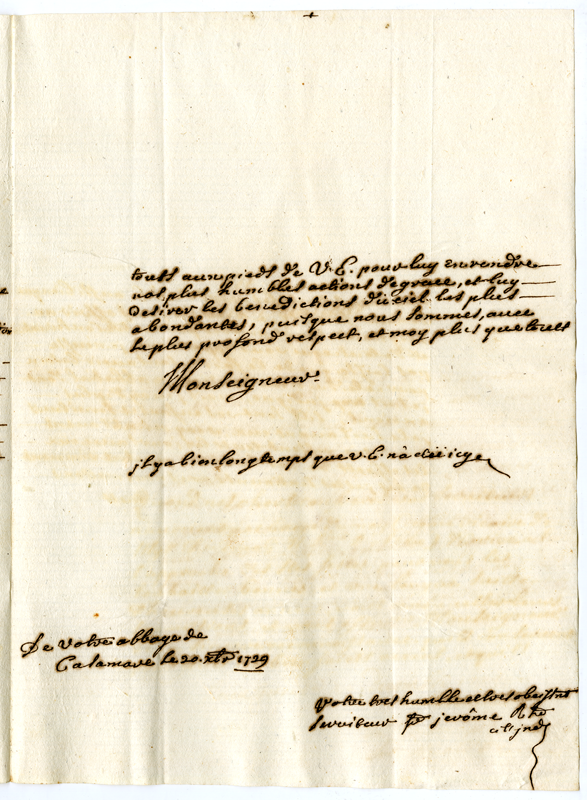 touts aux pieds de V. E. pour luy en rendre
nos plus humbles actions de grace, et luy
desirer les benedictions du ciel les plus
abondantes, puisque nous sommes, avec
le plus profond respect, et moy plus que touts
Monseigneur
jl y a bien longtemps que v. E. n'a été icy
De votre abbaye de
le 20. xbr 1729
votre tres humble et tres obeissnt
serviteur jerôme